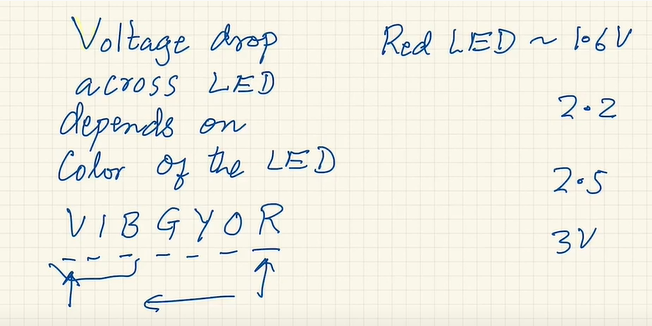 Voltage drop
across LED
depends on
Color of the LED
V I B G Y O R
Red LED ~ 1.6V
2.2
2.5
3V